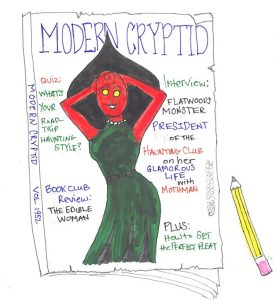 MODERN CRYPTID
QUIZ:
WHATS
YOUR
ROAD-
TRIP
HAUNTING
STYLE?
Interview:
FLATWOODS
MONSTER
PRESIDENT
OF THE
HAUNTING CLUB
on her
GLAMOROUS
LIFE
with
MOTHMAN
BOOK CLUB
Review:
THE EDIBLE
WOMAN
PLUS:
How to GET
the PERFECT PLEAT
MODERN CRYPTID VOL. 1952